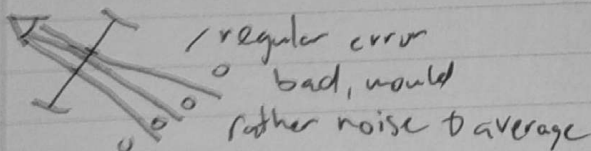 / regular error
bad, would
rather noise to average